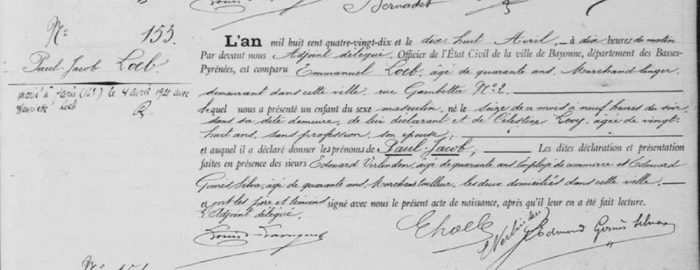 Bernadet
N° 153.
Paul-Jacob Loeb
marié à Paris (16e) le 4 avril 1921 avec
Henriette Loeb
L'an mil huit cent quatre-vingt-dix et le dix huit Avril, à dix heures du matin
Par devant nous Adjoint délégué, Officier de l'État Civil de la ville de Bayonne, département des Basses-
Pyrénées, est comparu Emmanuel Loeb, âgé de quarante ans, Marchand linger,
demeurant dans cette ville, rue Gambetta N° 2.
lequel nous a présenté un enfant du sexe masculin, né le Seize de ce mois à neuf heures du soir,
dans sa dite demeure, de lui déclarant et de Célestine Levy, âgée de vingt-
huit ans, sans profession, son épouse,
et auquel il a déclaré donner les prénoms de Paul-Jacob, Les dites déclaration et présentation
faites en présence des sieurs Edouard Verlinden, âgé de quarante ans, Employé de commerce et Edmond
Gomès Silva, âgé de quarante ans, Marchand tailleur, les deux domiciliés dans cette ville.
et ont les père et témoins signé avec nous le présent acte de naissance, après qu'il leur en a été fait lecture.
L'Adjoint délégué,
E Verlinden Edmond Gomès Silva